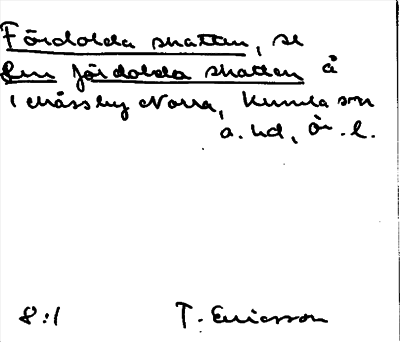 Fördolda skatten, se
Den fördolda skatten å
i Mässby Norra, Kumla sn
a. hd, Ö.l.
8:1 T. Ericsson